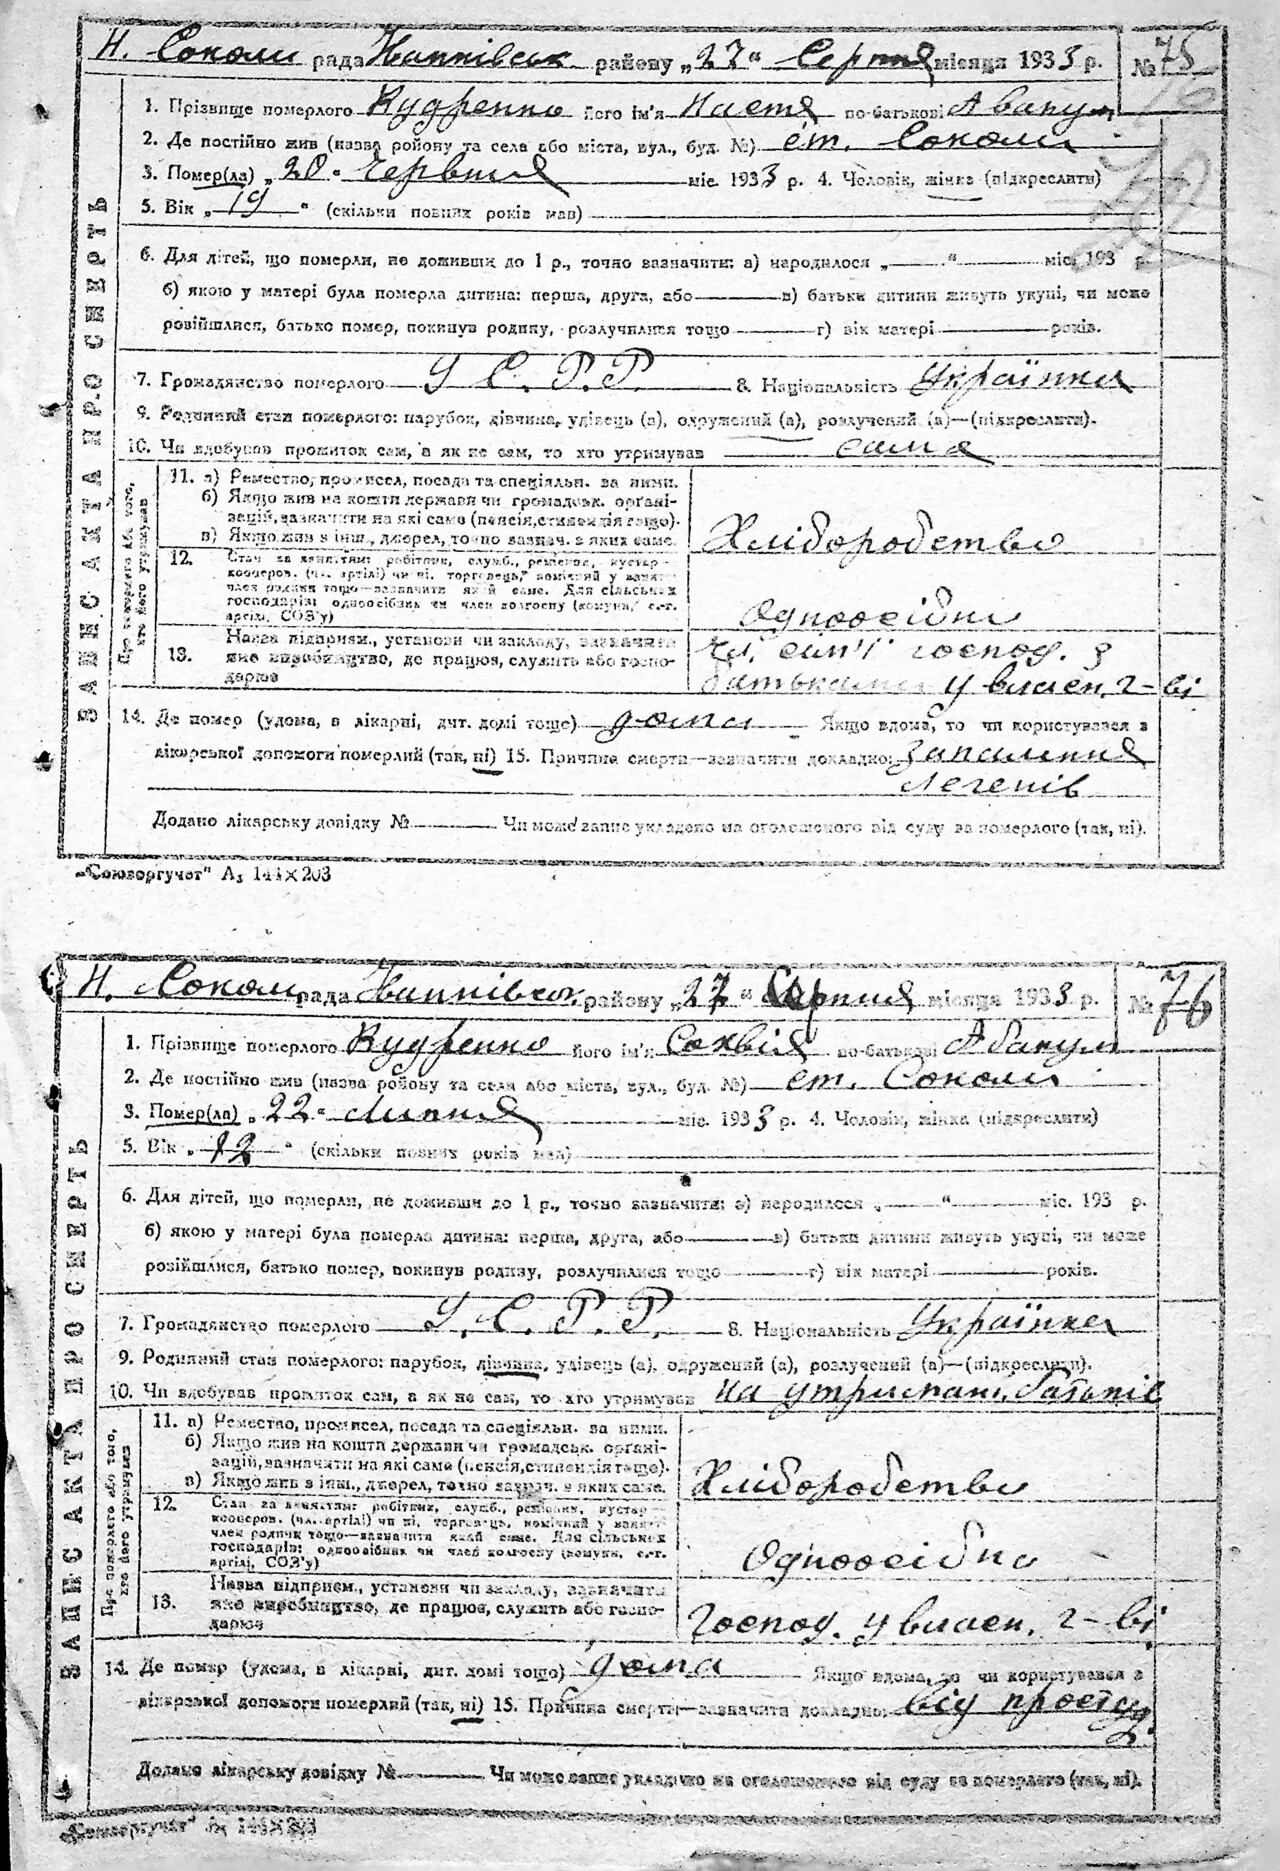 Н. Соколи рада Ганнівськ району „27“ Серпня місяця 1933 р. № 75
ЗАПИС АКТА ПРО СМЕРТЬ
1. Прізвище померлого Кудренко його ім'я Настя по-батькові Авакум
2. Де постійно жив (назва ройону та села або міста, вул., буд. №) ст. Соколи
3. Помер(ла) „20“ Червня міс. 1933 р. 4. Чоловік, жінка (підкреслити)
5. Вік „19“ (скільки повних років мав)
6. Для дітей, що померли, не доживши до 1 р., точно зазначити: а) народилося „ “ міс. 193 р.
б) якою у матері була померла дитина: перша, друга, або в) батьки дитини живуть укупі, чи може
розійшлися, батько помер, покинув родину, розлучилися тощо г) вік матері років.
7. Громадянство померлого У.С.Р.Р. 8. Національність Українка
9. Родинний стан померлого: парубок, дівчина, удівець (а), одружений (а), розлучений (а)—(підкреслити).
10. Чи здобував прожиток сам, а як не сам, то хто утримував сама
Про померлого або того, хто його утримував
11. а) Ремество, промисел, посада та спеціяльн. за ними.
б) Якщо жив на кошти держави чи громадськ. органі-
зацій, зазначити на які саме (пенсія, стипендія тощо).
в) Якщо жив з інш., джерел, точно зазнач. з яких саме. Хліборобство
12. Стан за заняттям: робітник, служб., ремісник, кустар-
кооперов. (чл. артілі) чи ні, торговець, помічний у занят.
член родини тощо—зазначити який саме. Для сільських
господарів: одноосібник чи член колгоспу (комуни, с.-г.
артілі, СОЗ'у) Одноосібни
13. Назва підприєм., установи чи закладу, зазначити
яке виробництво, де працює, служить або госпо-
дарює Чл. сім'ї господ. з
батьками у власн. г-ві
14. Де помер (удома, в лікарні, дит. домі тощо) дома Якщо вдома, то чи користувався з
лікарської допомоги померлий (так, ні) 15. Причина смерти—зазначити докладно: Запалення
легенів
Додано лікарську довідку № Чи може запис укладено на оголошеного від суду за померлого (так, ні).
„Союзоргучет“ А₅ 144×203
Н. Соколи рада Ганнівськ району „27“ Серпня місяця 1933 р. № 76
ЗАПИС АКТА ПРО СМЕРТЬ
1. Прізвище померлого Кудренко його ім'я Сохвія по-батькові Авакум
2. Де постійно жив (назва ройону та села або міста, вул., буд. №) ст. Соколи
3. Помер(ла) „22“ Липня міс. 1933 р. 4. Чоловік, жінка (підкреслити)
5. Вік „12“ (скільки повних років мав)
6. Для дітей, що померли, не доживши до 1 р., точно зазначити: а) народилося „ “ міс. 193 р.
б) якою у матері була померла дитина: перша, друга, або в) батьки дитини живуть укупі, чи може
розійшлися, батько помер, покинув родину, розлучилися тощо г) вік матері років.
7. Громадянство померлого У.С.Р.Р. 8. Національність Українка
9. Родинний стан померлого: парубок, дівчина, удівець (а), одружений (а), розлучений (а)—(підкреслити).
10. Чи здобував прожиток сам, а як не сам, то хто утримував На утриман. батьків
Про померлого або того, хто його утримував
11. а) Ремество, промисел, посада та спеціяльн. за ними.
б) Якщо жив на кошти держави чи громадськ. органі-
зацій, зазначити на які саме (пенсія, стипендія тощо).
в) Якщо жив з інш., джерел, точно зазнач. з яких саме. Хліборобство
12. Стан за заняттям: робітник, служб., ремісник, кустар-
кооперов. (чл. артілі) чи ні, торговець, помічний у занят.
член родини тощо—зазначити який саме. Для сільських
господарів: одноосібник чи член колгоспу (комуни, с.-г.
артілі, СОЗ'у) Одноосібни
13. Назва підприєм., установи чи закладу, зазначити
яке виробництво, де працює, служить або госпо-
дарює Господ. у власн. г-ві
14. Де помер (удома, в лікарні, дит. домі тощо) дома Якщо вдома, то чи користувався з
лікарської допомоги померлий (так, ні) 15. Причина смерти—зазначити докладно: від простуд
Додано лікарську довідку № Чи може запис укладено на оголошеного від суду за померлого (так, ні).
„Союзоргучет“ А₅ 144×203